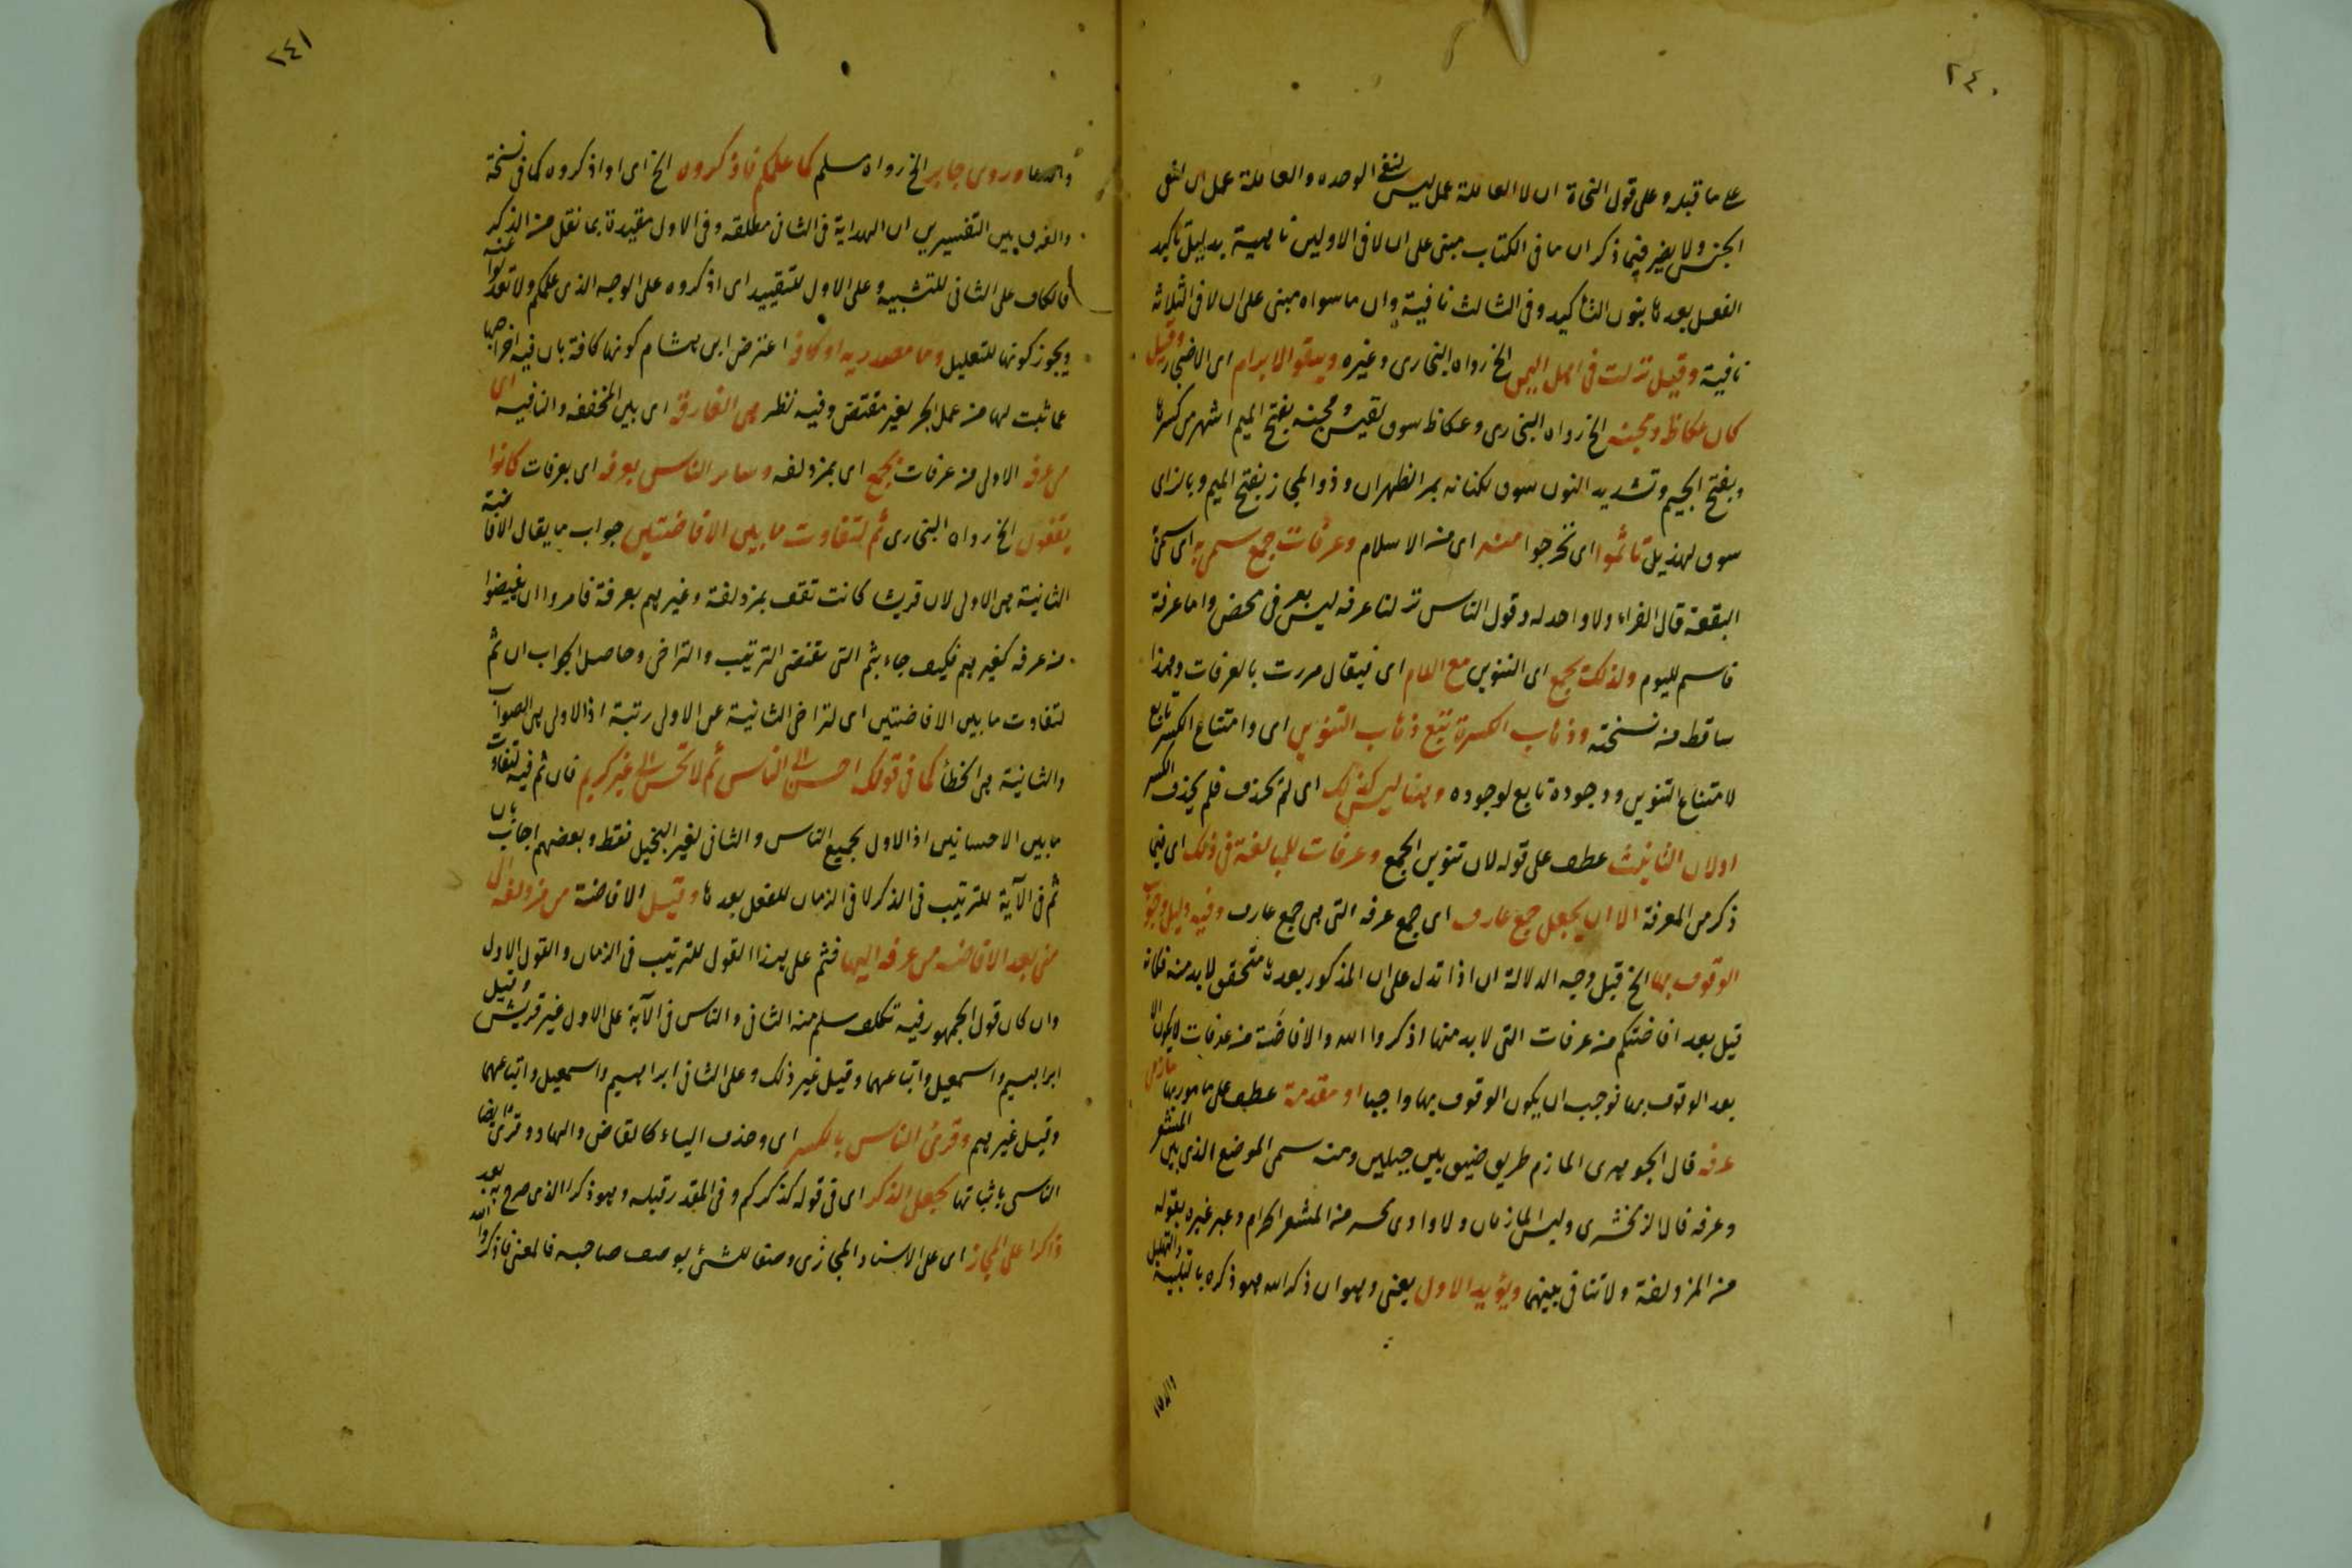 ٢٤٠
على ما قبله وعلى قول النحاة ان لا العاملة عمل ليس لنفى الوحده والعاملة عمل ان لنفى
الجنس ولا يضر فيما ذكر ان ما فى الكتاب مبنى على ان لا فى الاولين ناهية بدليل تاكيد
الفعل بعدها بنون التاكيد وفى الثالث نافية وان ما سواه مبنى على ان لا فى الثلاثة
نافية وقيل نزلت فى اهل اليمن الخ رواه البخارى وغيره ويتقوا الابرام اى الاضجار وقيل
كان عكاظ ومجنه الخ رواه البخارى وعكاظ سوق لقيس ومجنه بفتح الميم اشهر من كسرها
وبفتح الجيم وتشديد النون سوق لكنانه بمر الظهران وذو المجاز بفتح الميم وبالزاى
سوق لهذيل تاثموا اى تحرجوا منه اى من الاسلام وعرفات جمع سمى به اى سمى
البقعة قال الفراء ولا واحد له وقول الناس نزلنا عرفه ليس بعربى محض واما عرفة
فاسم لليوم ولذلك يجمع اى التنوين مع اللام اى فيقال مررت بالعرفات وهذا
ساقط من نسخته وذهاب الكسرة تتبع ذهاب التنوين اى وامتناع الكسر تابع
لامتناع التنوين ووجوده تابع لوجوده وهنا ليس كذلك اى لم يحذف فلم يحذف الكسر
اولان التانيث عطف على قوله لان تنوين الجمع وعرفات للمبالغة فى ذلك اى فيما
ذكر من المعرفة الا ان يجعل جمع عارف اى جمع عرفه التى هى جمع عارف وفيه دليل وجوب
الوقوف بها الخ قيل وجه الدلالة ان اذا تدل على ان المذكور بعدها متحقق لابد منه فكانه
قيل بعد افاضتكم من عرفات التى لابد منها اذكروا الله والافاضة من عرفات لا يكون الا
بعد الوقوف بها فوجب ان يكون الوقوف بها واجبا او مقدمة عطف على مامور بها مازمى
عرفه قال الجوهرى المازم طريق ضيق بين جبلين ومنه سمى الموضع الذى بين المشعر
وعرفه قال الزمخشرى وليس المازمان ولا وادى محسر من المشعر الحرام وعبر غيره بقوله
من المزدلفة ولا تنافى بينهما ويؤيد الاول يعنى وهو ان ذكر الله هو ذكره بالتلبية والتهليل
٢٤١
وروى جابر الخ رواه مسلم كما علمكم فاذكروه الخ اى او اذكروه كما فى نسخة
والفرق بين التفسيرين ان الهداية فى الثانى مطلقه وفى الاول مقيدة بما نقل من الذكر
فالكاف على الثانى للتشبيه وعلى الاول للتقييد اى اذكروه على الوجه الذى علمكم ولا تعدلوا عنه
ويجوز كونها للتعليل وما مصدريه او كافة اعترض ابن هشام كونها كافة بان فيه اخراجها
عما ثبت لها من عمل الجر لغير مقتض وفيه نظر هى الفارقة اى بين المخففه والنافيه اى
من عرفه الاولى من عرفات بجمع اى بمزدلفه وساير الناس بعرفه اى بعرفات كانوا
يقفون الخ رواه البخارى ثم لتفاوت ما بين الافاضتين جواب ما يقال الافاضة
الثانية هى الاولى لان قريشا كانت تقف بمزدلفة وغيرهم بعرفة فامروا ان يفيضوا
من عرفه كغيرهم فكيف جاء بثم التى تقتضى الترتيب والتراخى وحاصل الجواب ان ثم
لتفاوت ما بين الافاضتين اى لتراخى الثانية عن الاولى رتبة اذ الاولى هى الصواب
والثانية هى الخطأ كما فى قولك احسن الى الناس ثم لا تحسن الى غير كريم فان ثم فيه لتفاوت
ما بين الاحسانين اذ الاول لجميع الناس والثانى لغير البخيل فقط وبعضهم اجاب بان
ثم فى الآية للترتيب فى الذكر لا فى الزمان للفعل بعدها وقيل الافاضة من مزدلفه الى
منى بعد الافاضه من عرفه اليها فثم على هذا القول للترتيب فى الزمان والقول الاول
وان كان قول الجمهور فيه تكلف سلم منه الثانى والناس فى الآية على الاول غير قريش وقيل
ابراهيم واسمعيل واتباعهما وقيل غير ذلك وعلى الثانى ابراهيم واسمعيل واتباعهما
وقيل غيرهم وقرئ الناس بالكسر اى وحذف الياء كالقاض والهاد وقرئ ايضا
الناسى باثباتها بجعل الذكر اى فى قوله كذكركم وفى المقدر قبله وهو ذكرا الذى صرح به بعد
ذاكرا على المجاز اى على الاسناد المجازى وصفا للشئ بوصف صاحبه فالمعنى فاذكروا الله